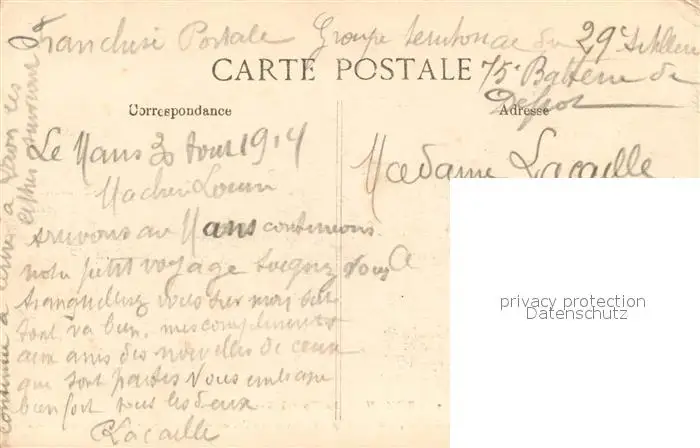 Franchise Postale Groupe territorial du 29e Artillerie
75e Batterie de
Depot
CARTE POSTALE
Correspondance
Adresse
Le Mans 30 Aout 1914
Ma cher Louise
arrivons au Mans continuons
notre petit voyage Soignez vous
tranquillisez vous sur mon sort
tout va bien. mes compliments
aux amis des nouvelles de ceux
que sont partis Vous embrasse
bien fort tous les deux
Lacaille
Madame Lacaille
continue a ecrire a les
privacy protection
Datenschutz